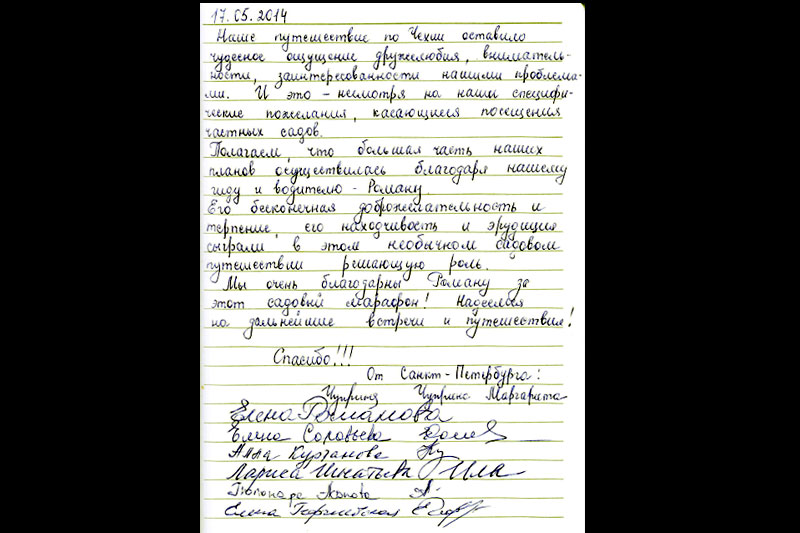 17.05.2014
Наше путешествие по Чехии оставило
чудесное ощущение дружелюбия, вниматель-
ности, заинтересованности нашими проблема-
ми. И это - несмотря на наши специфи-
ческие пожелания, касающиеся посещения
частных садов.
Полагаем, что большая часть наших
планов осуществилась благодаря нашему
гиду и водителю - Роману.
Его бесконечная доброжелательность и
терпение, его находчивость и эрудиция
сыграли в этом необычном садовом
путешествии решающую роль.
Мы очень благодарны Роману за
этот садовый марафон! Надеемся
на дальнейшие встречи и путешествия!
Спасибо!!!
От Санкт-Петербурга:
Маргарита
Елена Романова
Елена Соловьева
Алла Курганова
Лариса Игнатьева
Елена